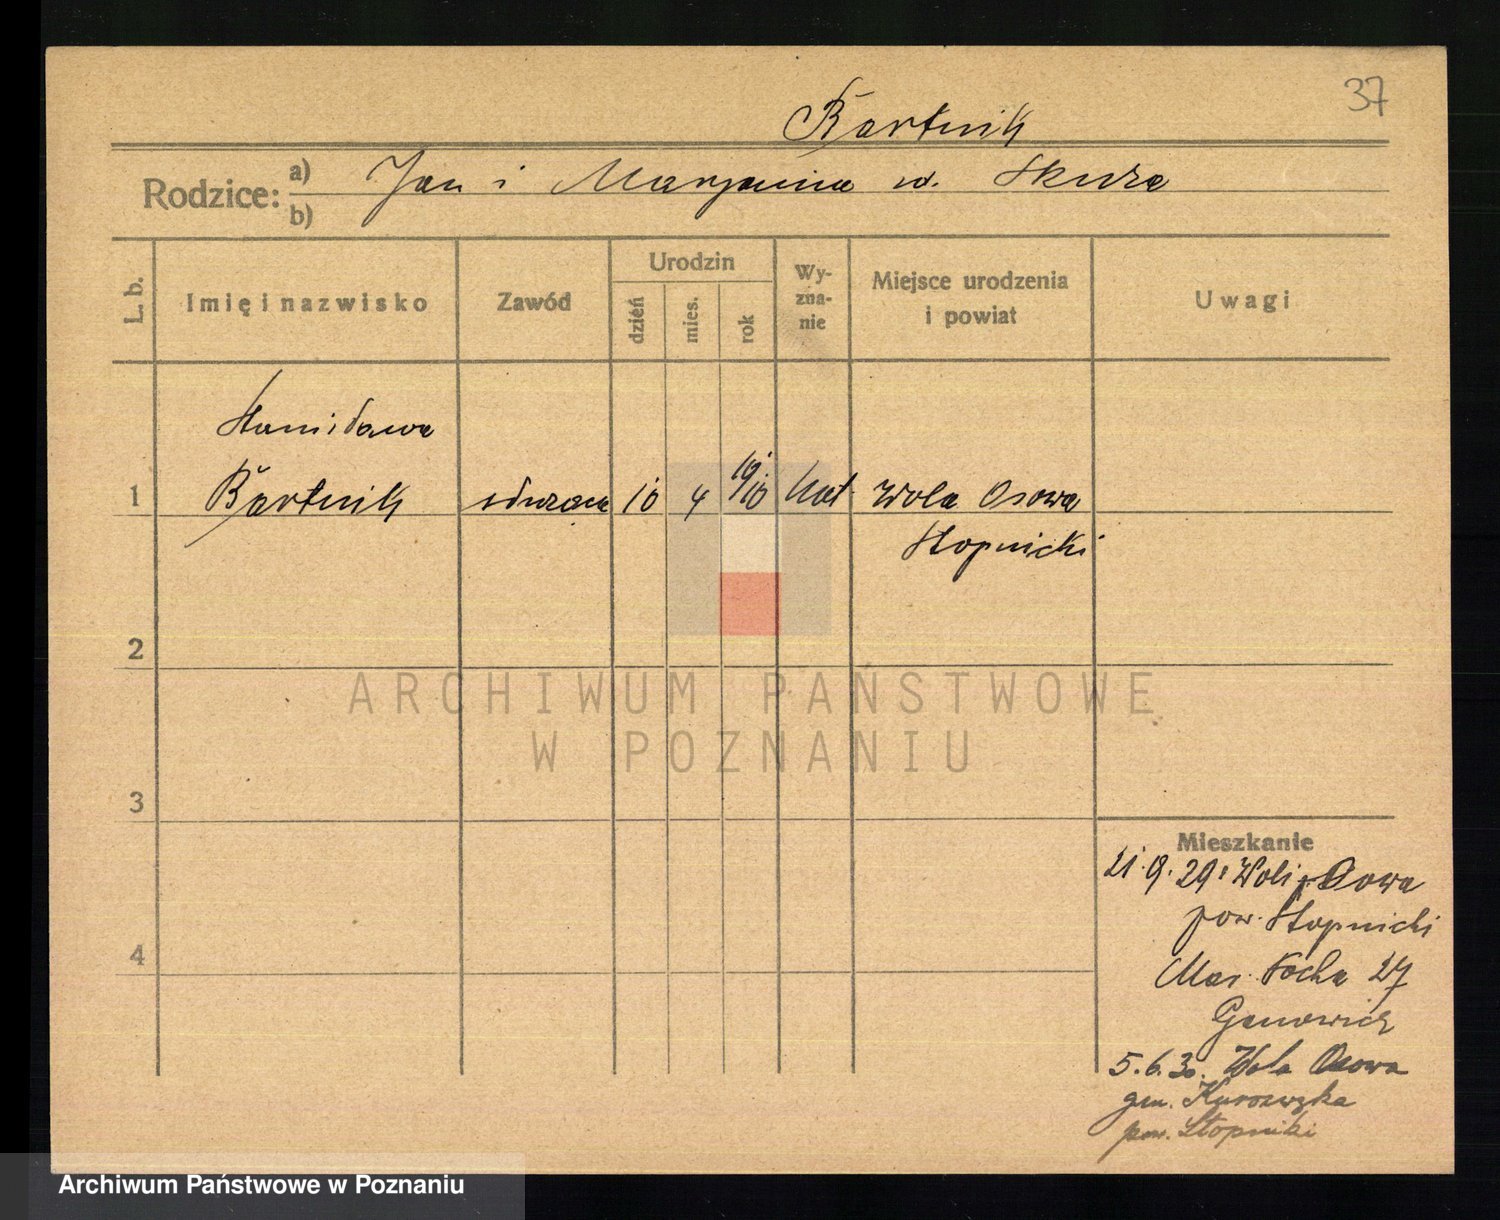 37
Bartnik
Rodzice: a) Jan i Maryanna w. Skura
b)
L. b.
Imię i nazwisko
Zawód
Urodzin
dzień
mies.
rok
Wy-
zna-
nie
Miejsce urodzenia
i powiat
Uwagi
Stanisława
1 Bartnik służąca 10 4 1910 kat Wola Osowa
Stopnicki
2
ARCHIWUM PAŃSTWOWE
W POZNANIU
3
Mieszkanie
21.9.29: Woli Osowa
pow. Stopnicki
4
Mar. Focha 27
5.6.30. Wola Osowa
gm. Kurozwęka
pow. Stopnicki
Archiwum Państwowe w Poznaniu